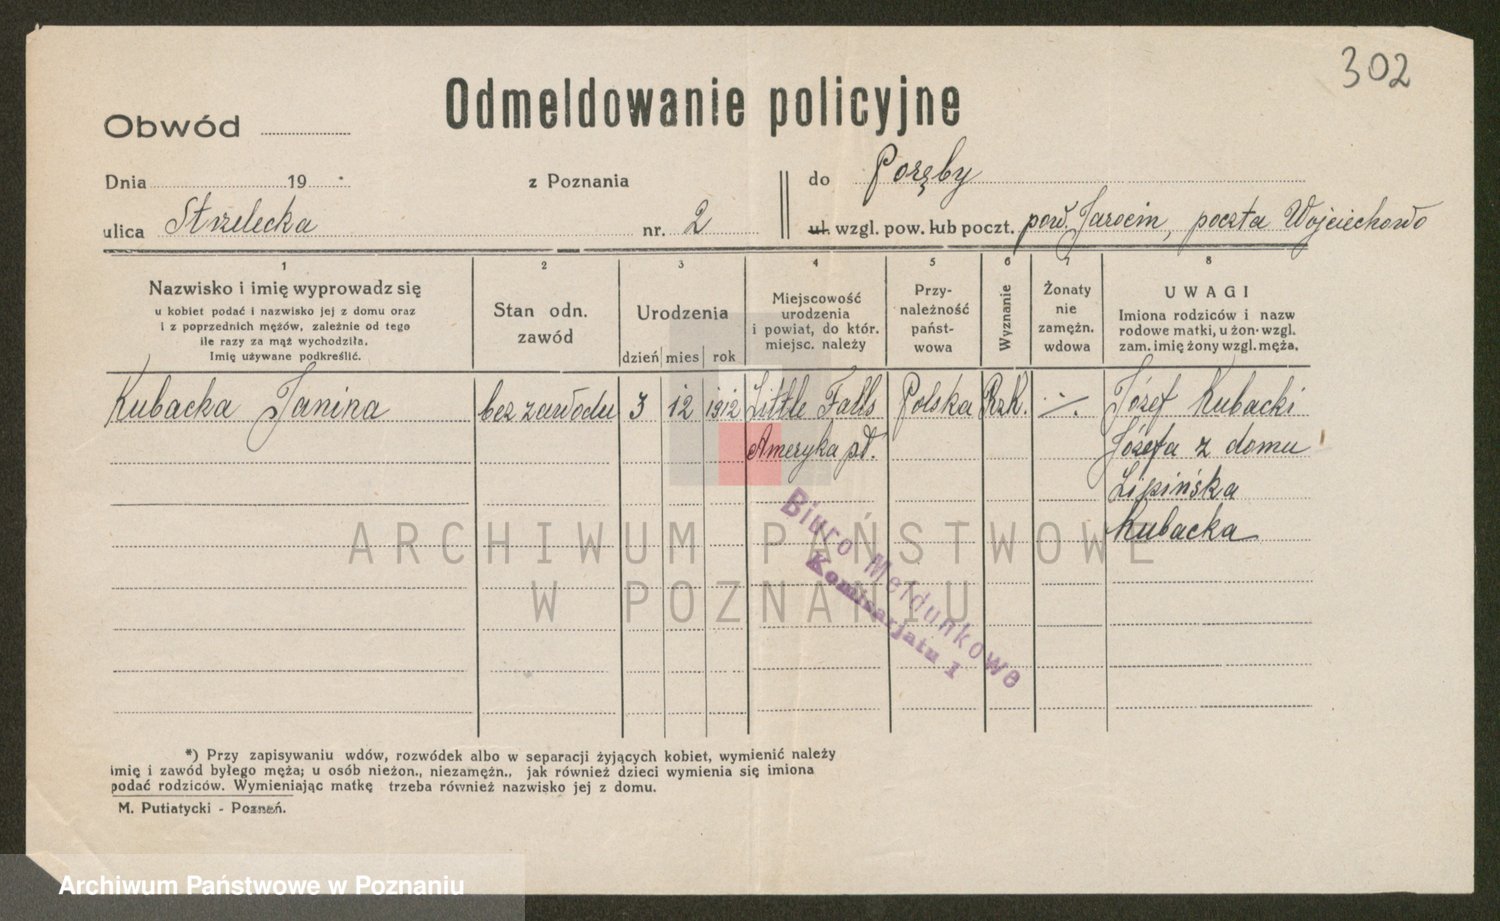 302
Odmeldowanie policyjne
Obwód
Dnia 19 z Poznania do Poręby
ulica Strzelecka nr. 2 ul. wzgl. pow. lub poczt. pow. Jarocin, poczta Wojciechowo
1 2 3 4 5 6 7 8
Nazwisko i imię wyprowadz się
u kobiet podać i nazwisko jej z domu oraz
i z poprzednich mężów, zależnie od tego
ile razy za mąż wychodziła.
Imię używane podkreślić.
Stan odn.
zawód
Urodzenia
dzień mies rok
Miejscowość
urodzenia
i powiat, do któr.
miejsc. należy
Przy-
należność
państ-
wowa
Wyznanie
Żonaty
nie
zamężn.
wdowa
UWAGI
Imiona rodziców i nazw
rodowe matki, u żon· wzgl.
zam. imię żony wzgl. męża.
Kubacka Janina bez zawodu 3 12 1912 Little Falls Polska Rzk. ·/. Józef Kubacki
Ameryka pd. Józefa z domu
Lipińska
Kubacka
Biuro Meldunkowe
Komisarjatu I
ARCHIWUM PAŃSTWOWE
W POZNANIU
*) Przy zapisywaniu wdów, rozwódek albo w separacji żyjących kobiet, wymienić należy
imię i zawód byłego męża; u osób nieżon., niezamężn., jak również dzieci wymienia się imiona
podać rodziców. Wymieniając matkę trzeba również nazwisko jej z domu.
M. Putiatycki - Poznań.
Archiwum Państwowe w Poznaniu